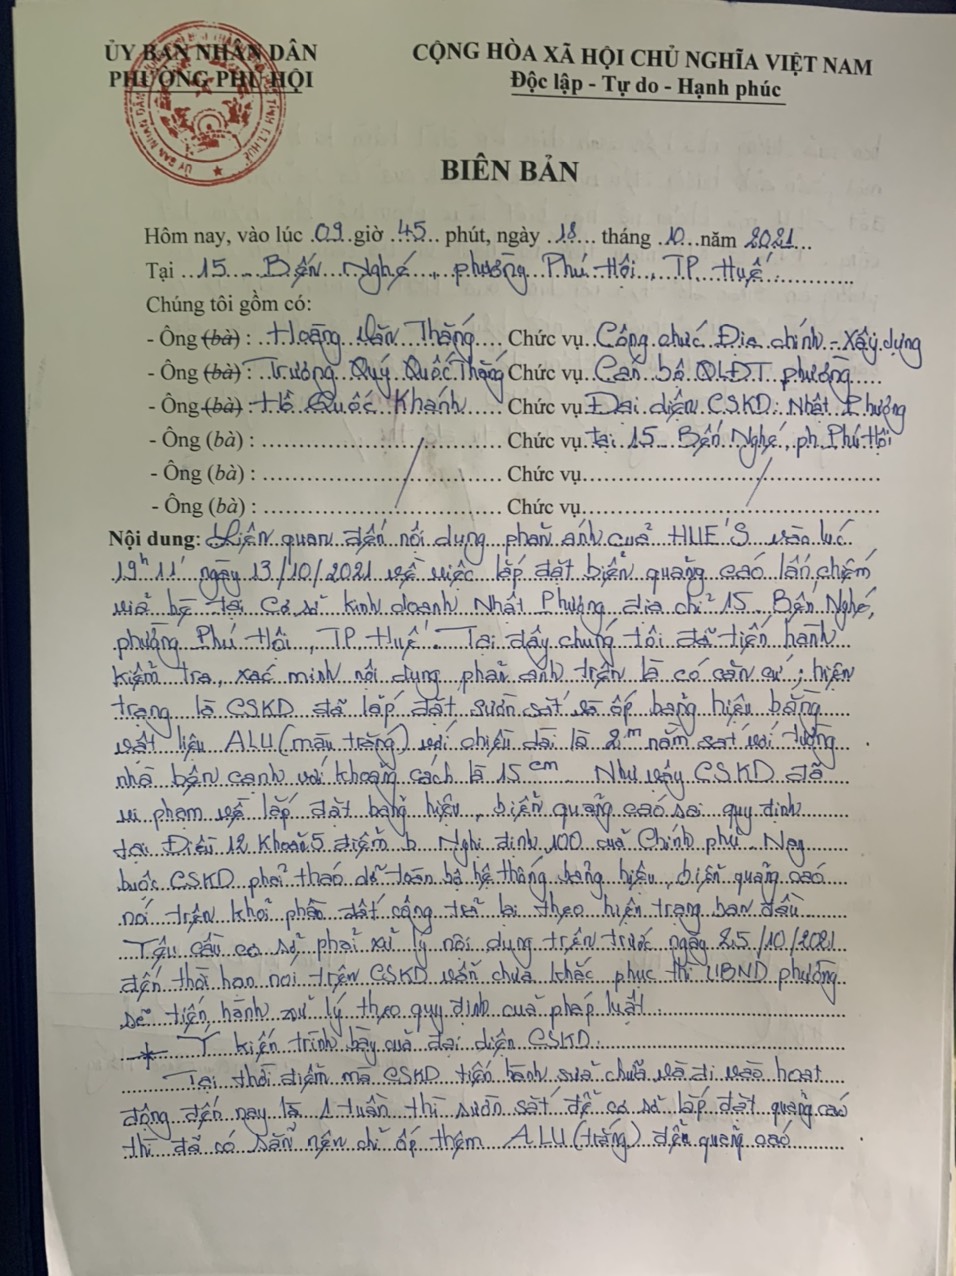 ỦY BAN NHÂN DÂN
PHƯỜNG PHÚ HỘI
CỘNG HÒA XÃ HỘI CHỦ NGHĨA VIỆT NAM
Độc lập - Tự do - Hạnh phúc
BIÊN BẢN
Hôm nay, vào lúc 09 giờ 45 phút, ngày 18 tháng 10 năm 2021
Tại 15 Bến Nghé, phường Phú Hội, TP Huế
Chúng tôi gồm có:
- Ông (bà) : Hoàng Văn Thắng Chức vụ Công chức Địa chính - Xây dựng
- Ông (bà) : Trương Quý Quốc Thắng Chức vụ Cán bộ QLĐT phường
- Ông (bà) : Hồ Quốc Khánh Chức vụ Đại diện CSKD: Nhật Phượng
- Ông (bà) : Chức vụ tại 15 Bến Nghé, ph. Phú Hội
- Ông (bà) : Chức vụ
- Ông (bà) : Chức vụ
Nội dung: Liên quan đến nội dung phản ánh của HUE'S vào lúc
19h11' ngày 13/10/2021 về việc lắp đặt biển quảng cáo lấn chiếm
vỉa hè tại Cơ sở kinh doanh Nhật Phượng địa chỉ 15 Bến Nghé,
phường Phú Hội, TP. Huế. Tại đây chúng tôi đã tiến hành
kiểm tra, xác minh nội dung phản ánh trên là có căn cứ; hiện
trạng là CSKD đã lắp đặt sườn sắt và ốp bảng hiệu bằng
vật liệu ALU (màu trắng) với chiều dài là 2m nằm sát với tường
nhà bên cạnh với khoảng cách là 15cm. Như vậy CSKD đã
vi phạm về lắp đặt bảng hiệu, biển quảng cáo sai quy định
tại Điều 12 khoản 5 điểm b Nghị định 100 của Chính phủ. Nay
buộc CSKD phải tháo dỡ toàn bộ hệ thống bảng hiệu, biển quảng cáo
nói trên khỏi phần đất công trả lại theo hiện trạng ban đầu
Yêu cầu cơ sở phải xử lý nội dung trên trước ngày 25/10/2021
đến thời hạn nói trên CSKD vẫn chưa khắc phục thì UBND phường
sẽ tiến hành xử lý theo quy định của pháp luật
* Ý kiến trình bày của đại diện CSKD:
Tại thời điểm mà CSKD tiến hành sửa chữa và đi vào hoạt
động đến nay là 1 tuần thì sườn sắt để cơ sở lắp đặt quảng cáo
thì đã có sẵn nên chỉ ốp thêm ALU (trắng) để quảng cáo